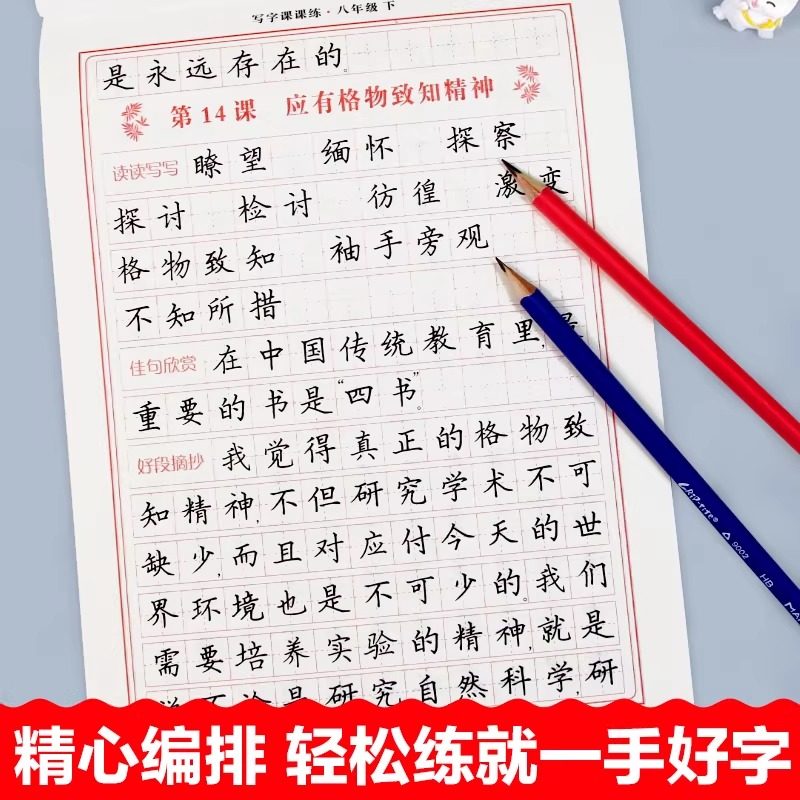 写字课课练·八年级 下
是永远存在的。
第14课 应有格物致知精神
读读写写 瞭望 缅怀 探察
探讨 检讨 彷徨 激变
格物致知 袖手旁观
不知所措
佳句欣赏 在中国传统教育里,最
重要的书是“四书”。
好段摘抄 我觉得真正的格物致
知精神,不但研究学术不可
缺少,而且对应付今天的世
界环境也是不可少的。我们
需要培养实验的精神,就是
研究自然科学,研
GRIP-TITE® △ 9002 HB
精心编排 轻松练就一手好字